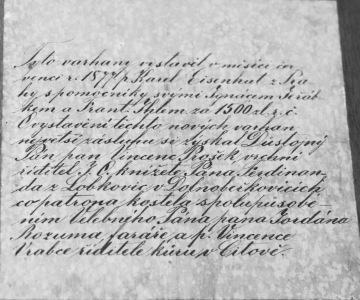 Tyto varhany vystavil v měsíci čer
venci r. 1877 p. Karel Eisenhut z Pra
hy, s pomocníky svými Ignácem Jeřáb
kem a Frant. Ihlem za 1500 zl. r. č.
O vystavení těchto nových varhan
největší zásluhu si získal Důstojný
Pán pan Vincenc Prošek vrchní
ředitel J. O. knížete Pána Ferdinan
da z Lobkovic v Dolnobeřkovicích
co patrona kostela spolupůsobe
ním Velebného Pána pana Jordána
Rozuma faráře a p. Vincence
Vrabce řiditele kůru v Cítově.